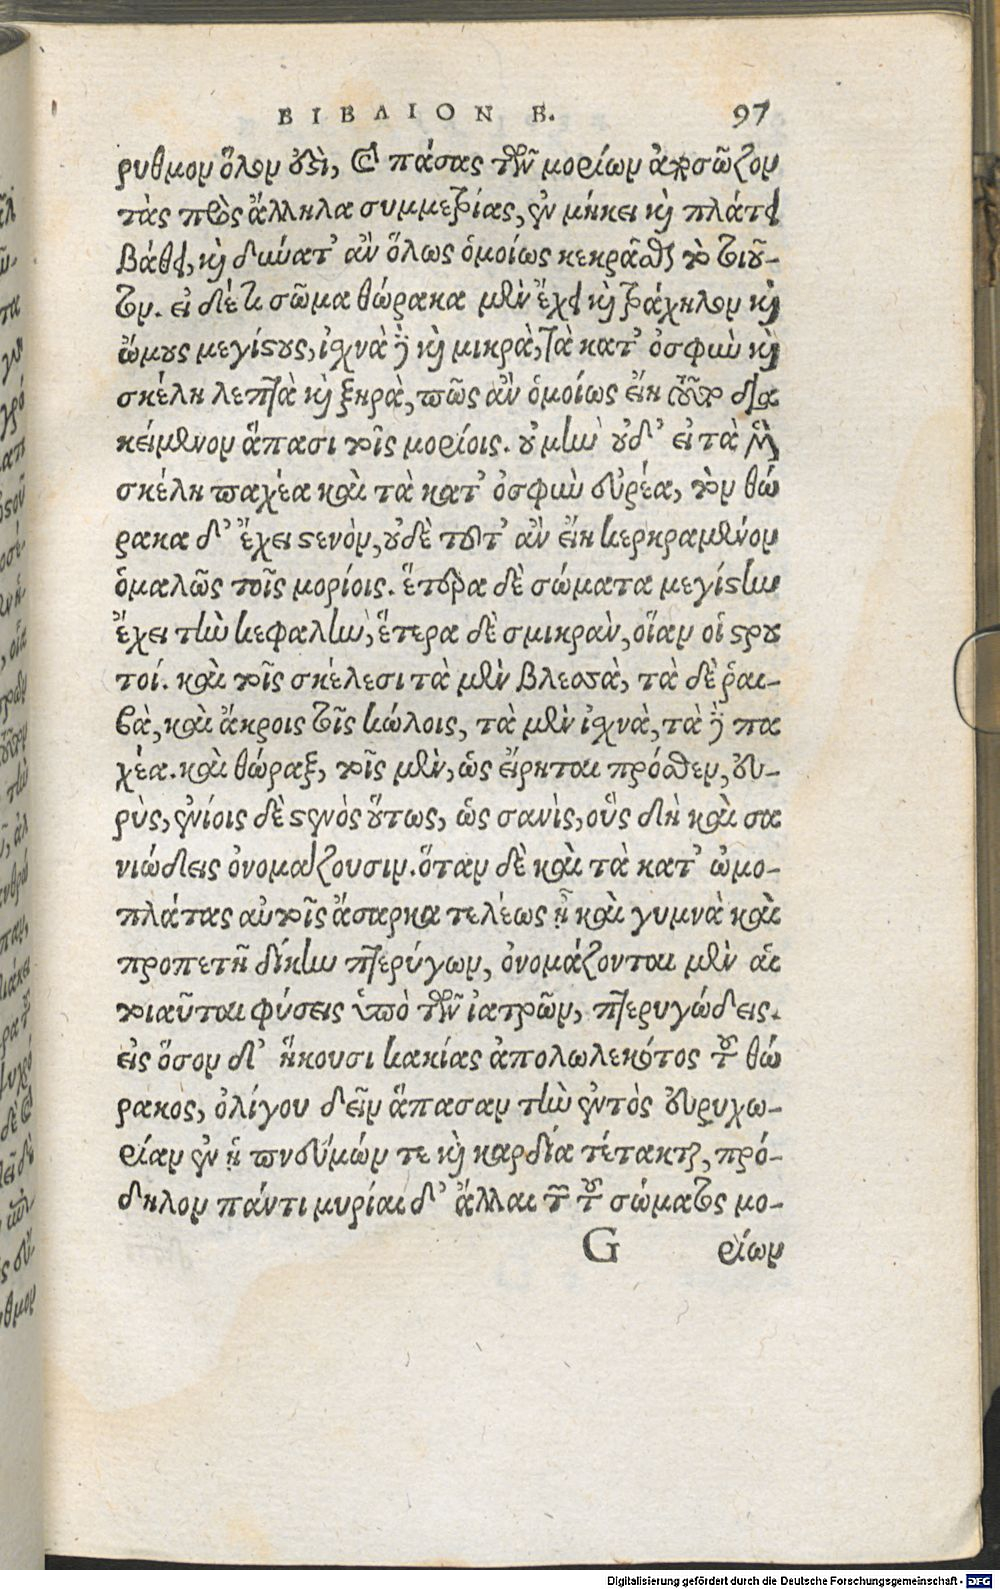 ΒΙΒΛΙΟΝ Β. 97
ρυθμον ὅλον ἐστὶ, καὶ πάσας τῶν μορίων ἀποσῶζον
τὰς πρὸς ἄλληλα συμμετρίας, ἐν μήκει καὶ πλάτει
βάθει, καὶ δύναιτ' ἂν ὅλως ὁμοίως κεκρᾶσθαι τὸ τοιοῦ-
τον. εἰ δέ τι σῶμα θώρακα μὲν ἔχει καὶ τράχηλον καὶ
ὤμους μεγίστους, ἰχνὰ δὲ καὶ μικρὰ, τὰ κατ' ὀσφὺν καὶ
σκέλη λεπτὰ καὶ ξηρὰ, πῶς ἂν ὁμοίως εἴη τοῦτο δια
κείμενον ἅπασι τοῖς μορίοις. οὐ μὴν οὐδ' εἰ τὰ μὲν
σκέλη παχέα καὶ τὰ κατ' ὀσφὺν εὐρέα, τὸν θώ
ρακα δ' ἔχει στενὸν, οὐδὲ τοῦτ' ἂν εἴη κεκραμένον
ὁμαλῶς τοῖς μορίοις. ἕτερα δὲ σώματα μεγίστην
ἔχει τὴν κεφαλὴν, ἕτερα δὲ σμικρὰν, οἵαν οἱ στρου
τοί. καὶ τοῖς σκέλεσι τὰ μὲν βλεσσὰ, τὰ δὲ ῥαι-
βὰ, καὶ ἄκροις τοῖς κώλοις, τὰ μὲν ἰχνὰ, τὰ δὲ πα
χέα. καὶ θώραξ, τοῖς μὲν, ὡς εἴρηται πρόσθεν, εὐ-
ρὺς, ἐνίοις δὲ στενὸς οὕτως, ὡς σανὶς, οὓς δὴ καὶ σα
νιώδεις ὀνομάζουσιν. ὅταν δὲ καὶ τὰ κατ' ὠμο-
πλάτας αὐτοῖς ἄσαρκα τελέως ᾖ καὶ γυμνὰ καὶ
προπετῆ δίκην πτερύγων, ὀνομάζονται μὲν αἱ
τοιαῦται φύσεις ὑπὸ τῶν ἰατρῶν, πτερυγώδεις.
εἰς ὅσον δ' ἥκουσι κακίας ἀπολωλεκότος τοῦ θώ
ρακος, ὀλίγου δεῖν ἅπασαν τὴν ἐντὸς εὐρυχω-
ρίαν ἐν ᾗ πνεύμων τε καὶ καρδία τέτακται, πρό-
δηλον πάντι μυρίαι δ' ἄλλαι τῶν τοῦ σώματος μο-
G ρίων
Digitalisierung gefördert durch die Deutsche Forschungsgemeinschaft - DFG